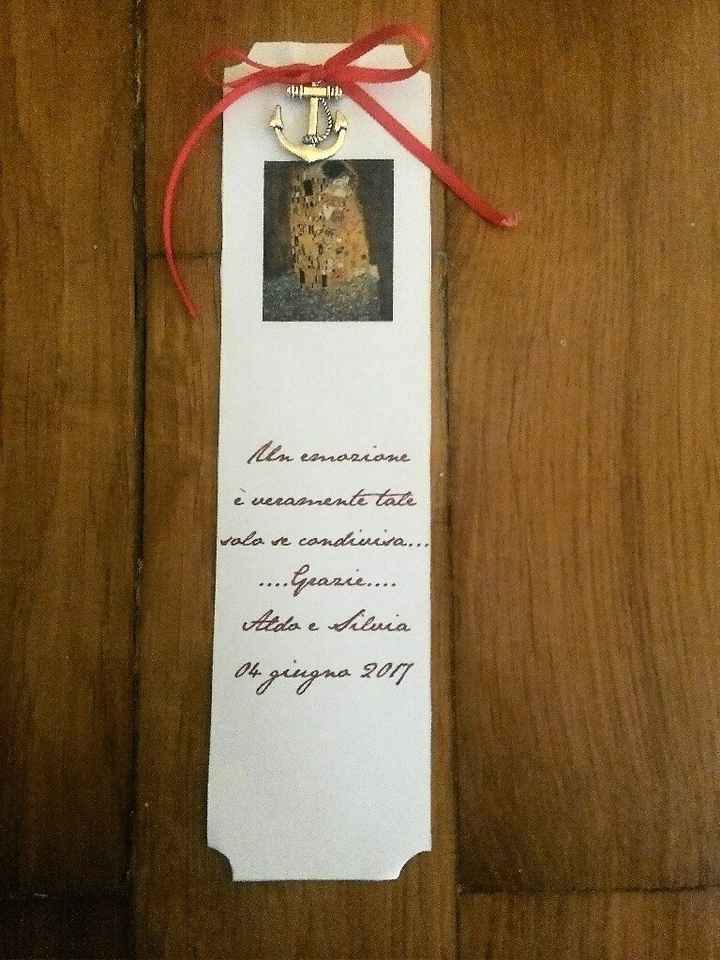 Un emozione
è veramente tale
solo se condivisa...
....Grazie....
Aldo e Silvia
04 giugno 2017